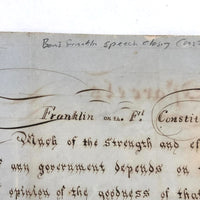 Ben Franklin speech closing Const
Franklin on the Fl Constit
Much of the strength and ef
f any government depends on t
opinion of the goodness of that